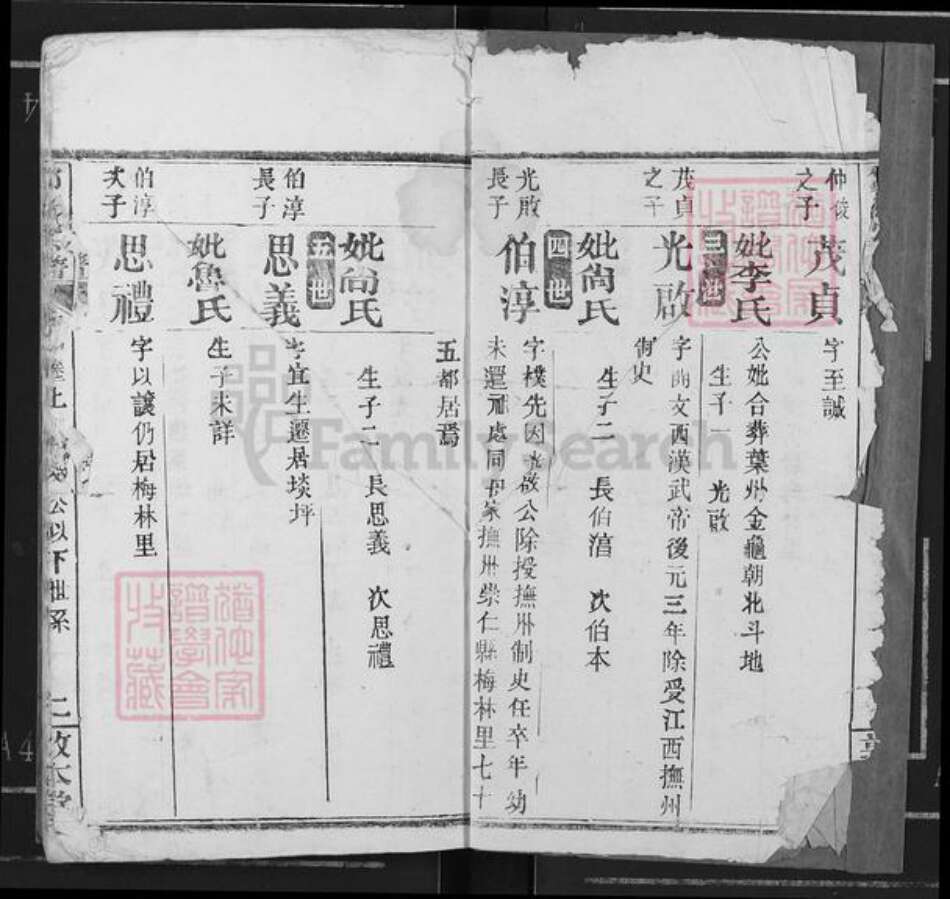 仲儀之子
茂貞
字至誠
妣李氏
公妣合葬葉州金龜朝北斗地
生子一 光啟
三世
茂貞之子
光啟
字 文西漢武帝後元三年除受江西撫州
御史
妣尚氏
生子二 長伯淳 次伯本
四世
光啟長子
伯淳
字樸先因光啟公除授撫州制史任卒年幼
未還 處同 家撫州崇仁縣梅林里七十
五都居焉
妣尚氏
生子二 長思義 次思禮
五世
伯淳長子
思義
字宜生遷居埮坪
妣魯氏
生子未詳
伯淳次子
思禮
字以讓仍居梅林里
公以下世系
二
敦本堂
譜學會
收藏
FamilySearch